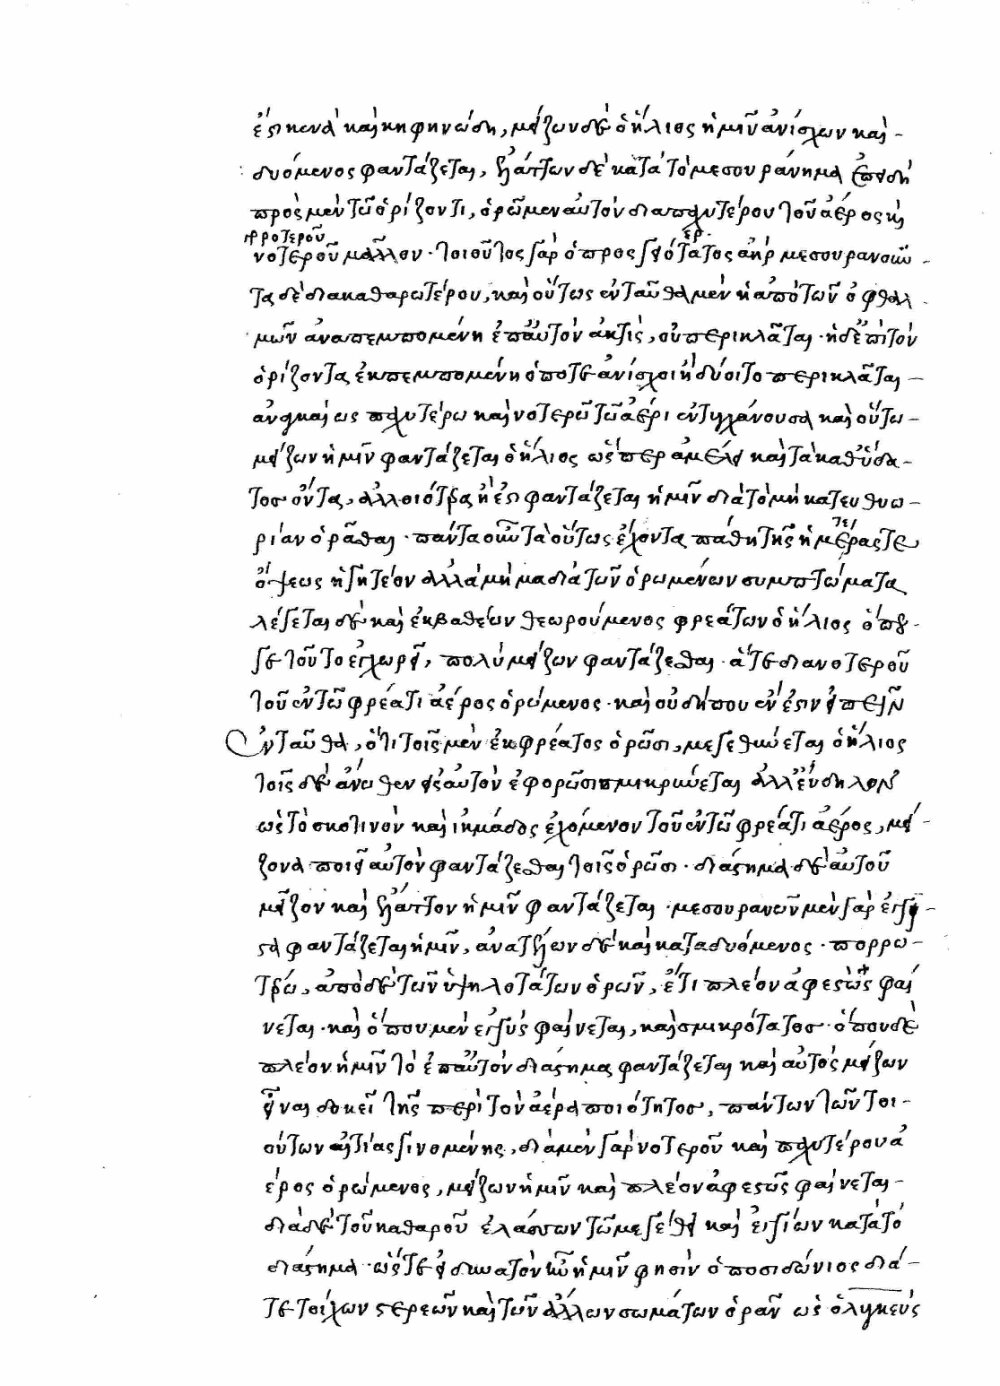 ἐπικενὰ καὶ κηφηνώδη, μείζων δὲ ὁ ἥλιος ἡμῖν ἀνίσχων καὶ
δυόμενος φαντάζεται, ἐλάττων δὲ κατὰ τὸ μεσουράνημα ἐπειδὴ
πρὸς μὲν τῷ ὁρίζοντι, ὁρῶμεν αὐτὸν διὰ παχυτέρου τοῦ ἀέρος καὶ
νοτεροῦ μᾶλλον · τοιοῦτος γὰρ ὁ προσγειότατος ἀὴρ μεσουρανοῦν
τα δὲ διὰ καθαρωτέρου, καὶ οὕτως ἐνταῦθα μὲν ἡ ἀπὸ τῶν ὀφθαλ
μῶν ἀναπεμπομένη ἐπ' αὐτὸν ἀκτὶς, οὐ περικλᾶται · ἡ δὲ ἐπὶ τὸν
ὁρίζοντα ἐκπεμπομένη ὁπότε ἀνίσχοι ἢ δύοιτο περικλᾶται
ἀναγκαίως παχυτέρῳ καὶ νοτερῷ τῷ ἀέρι ἐντυγχάνουσα καὶ οὕτω
μείζων ἡμῖν φαντάζεται ὁ ἥλιος ὥσπερ ἀμέλει καὶ τὰ καθ' ὕδα
τος ὄντα, ἀλλοιότερα ἢ ἔστι φαντάζεται ἡμῖν διὰ τὸ μὴ κατ' εὐθυω
ρίαν ὁρᾶσθαι · πάντα οὖν τὰ οὕτως ἔχοντα πάθη τῆς ἡμετέρας
ὄψεως ἡγητέον ἀλλὰ μὴ μὰ διὰ τῶν ὁρωμένων συμπτώματα
λέγεται δὲ καὶ ἐκ βαθέων θεωρούμενος φρεάτων ὁ ἥλιος ὅπου
γε τοῦτο ἐγχωρεῖ, πολὺ μείζων φαντάζεσθαι · ἅτε διὰ νοτεροῦ
τοῦ ἐν τῷ φρέατι ἀέρος ὁρώμενος · καὶ οὐ δήπου ἔνεστιν εἰπεῖν
ἐνταῦθα, ὅτι τοῖς μὲν ἐκ φρέατος ὁρῶσι, μεγεθύνεται ὁ ἥλιος
τοῖς δὲ ἄνωθεν εἰς αὐτὸν ἐφορῶσι σμικρύνεται ἀλλ' εὔδηλον
ὡς τὸ σκοτινὸν καὶ ἰκμάδος ἐχόμενον τοῦ ἐν τῷ φρέατι ἀέρος, μεί
ζονα ποιεῖ αὐτὸν φαντάζεσθαι τοῖς ὁρῶσι · διάστημα δὲ αὐτοῦ
μεῖζον καὶ ἔλαττον ἡμῖν φαντάζεται · μεσουρανῶν μὲν γὰρ ἔγγι
στα φαντάζεται ἡμῖν, ἀνατέλλων δὲ καὶ καταδυόμενος · πορρω
τέρω, ἀπὸ δὲ τῶν ὑψηλοτάτων ὁρῶν, ἔτι πλέον ἀφεστὼς φαί
νεται · καὶ ὅπου μὲν ἐγγὺς φαίνεται, καὶ σμικρότατος · ὅπου δὲ
πλέον ἡμῖν τὸ ἐπ' αὐτὸν διάστημα φαντάζεται καὶ αὐτὸς μείζων
εἶναι δοκεῖ τῆς περὶ τὸν ἀέρα ποιότητος, πάντων τῶν τοι
ούτων αἰτίας γινομένης, διὰ μὲν γὰρ νοτεροῦ καὶ παχυτέρου ἀ
έρος ὁρώμενος, μείζων ἡμῖν καὶ πλέον ἀφεστὼς φαίνεται
διὰ δὲ τοῦ καθαροῦ ἐλάττων τῷ μεγέθει καὶ ἐγγίων κατὰ τὸ
διάστημα · ὥστε εἰ δυνατὸν ἦν ἡμῖν φησὶν ὁ ποσιδώνιος διά
τε τοίχων στερεῶν καὶ τῶν ἄλλων σωμάτων ὁρᾶν ὡς ὁ λυγκεὺς